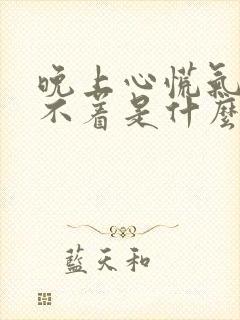 晚上心慌氣
不着是什麼
藍天和